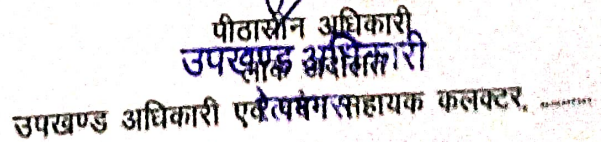 पीठासीन अधिकारी
उपखण्ड अधिकारी
लोक अदालत
उपखण्ड अधिकारी एवं सहायक कलक्टर, .........